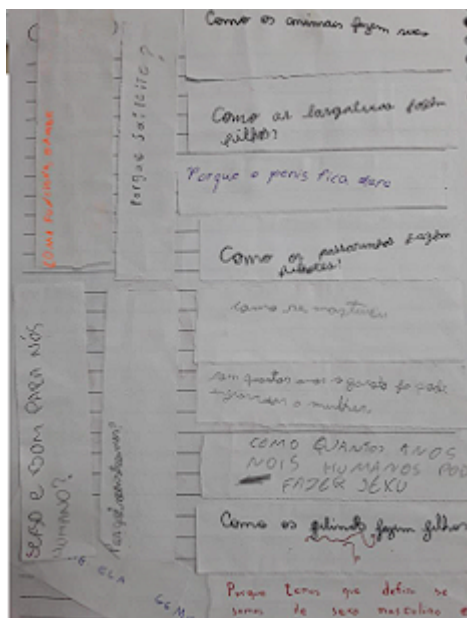 Como os animais fazem seus
Como as largatixas fazem
filhos?
Porque o penis fica duro
Como os passarinhos fazem
filhotes?
como se
com quantos anos o garoto já pode
engravidar a mulher.
COMO QUANTOS ANOS
NOIS HUMANOS POD
FAZER SEXU
Como os felinos fazem filhos
Porque temos que definir se
somos de sexo masculino e
Porque sai leite?
SEXO E BOM PARA NÓS
HUMANO?
ELA